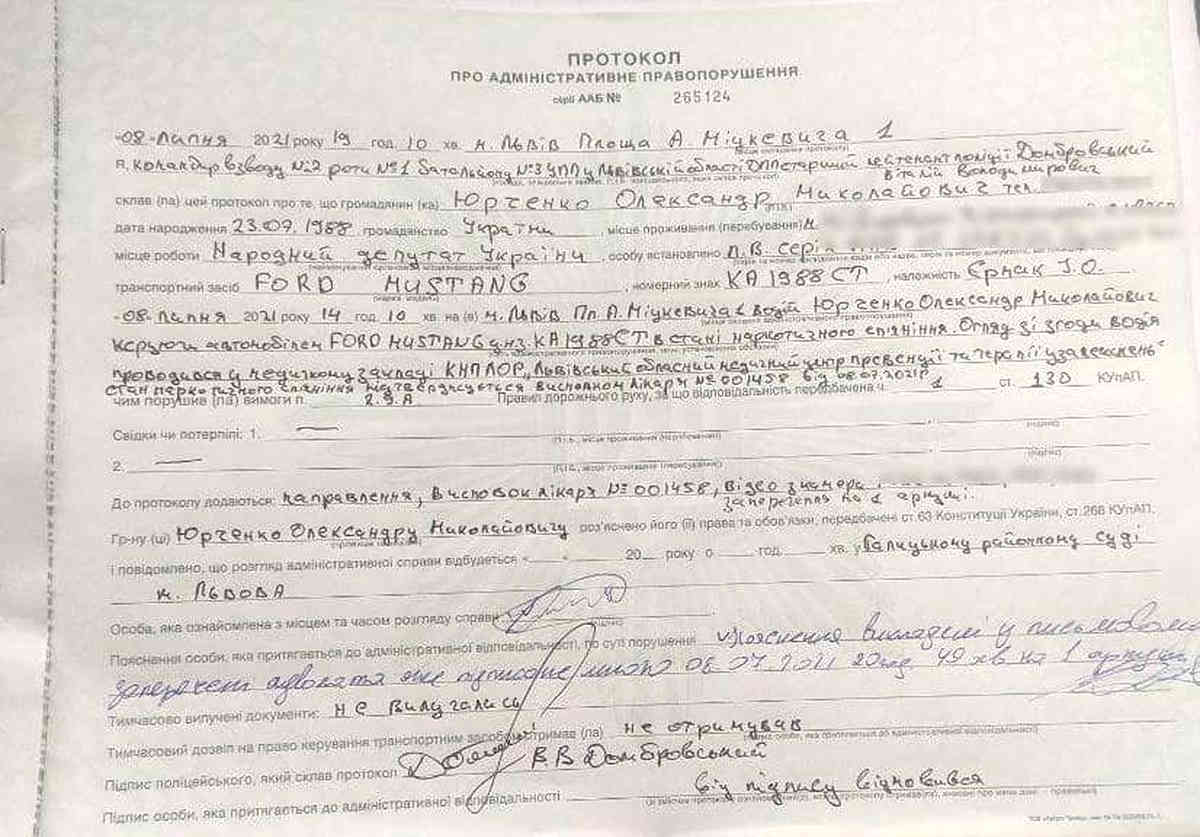 ПРОТОКОЛ
ПРО АДМІНІСТРАТИВНЕ ПРАВОПОРУШЕННЯ
серії ААБ № 265124
«08» Липня 2021 року 19 год. 10 хв. м. Львів Площа А. Міцкевича 1
Я, командир взводу №2 роти №1 батальйону №3 УПП у Львівській області ДПП старший лейтенант поліції Домбровський
Віталій Володимирович
склав (ла) цей протокол про те, що громадянин (ка) Юрченко Олександр Миколайович тел.
дата народження 23.09.1988 громадянство України, місце проживання (перебування) м.
місце роботи Народний депутат України, особу встановлено П.В. серія
транспортний засіб FORD MUSTANG, номерний знак КА1988СТ, належність Єрмак І.О.
«08» Липня 2021 року 14 год. 10 хв. на (в) м. Львів Пл. А. Міцкевича 1 водій Юрченко Олександр Миколайович
керуючи автомобілем FORD MUSTANG днз КА1988СТ в стані наркотичного сп'яніння. Огляд зі згоди водія
проводився у медичному закладі КНП ЛОР „Львівський обласний медичний центр превенції та терапії узалежнень"
Стан наркотичного сп'яніння підтверджується висновком лікаря №001458 від 08.07.2021р
чим порушив (ла) вимоги п. 2.9.А Правил дорожнього руху, за що відповідальність передбачена ч. 1 ст. 130 КУпАП.
Свідки чи потерпілі: 1. —
(П.І.Б., місце проживання (перебування)) (підпис)
2. —
(П.І.Б., місце проживання (перебування)) (підпис)
До протоколу додаються: направлення, висновок лікаря №001458, відео з камери
заперечення на 1 аркуші.
Гр-ну (ці) Юрченко Олександру Миколайовичу роз'яснено його (її) права та обов'язки, передбачені ст.63 Конституції України, ст.268 КУпАП,
і повідомлено, що розгляд адміністративної справи відбудеться « » 20 року о год. хв. у Галицькому районному суді
м. Львова
Особа, яка ознайомлена з місцем та часом розгляду справи
підпис
Пояснення особи, яка притягається до адміністративної відповідальності, по суті порушення Пояснення викладені у письмовому
запереченні адвоката яке підписане мною 08.07.2021 20 год 49 хв на 1 аркуші
Тимчасово вилучені документи: не вилучались
Тимчасовий дозвіл на право керування транспортним засобом отримав (ла) не отримував
Підпис поліцейського, який склав протокол В.В Домбровський
Підпис особи, яка притягається до адміністративної відповідальності від підпису відмовився